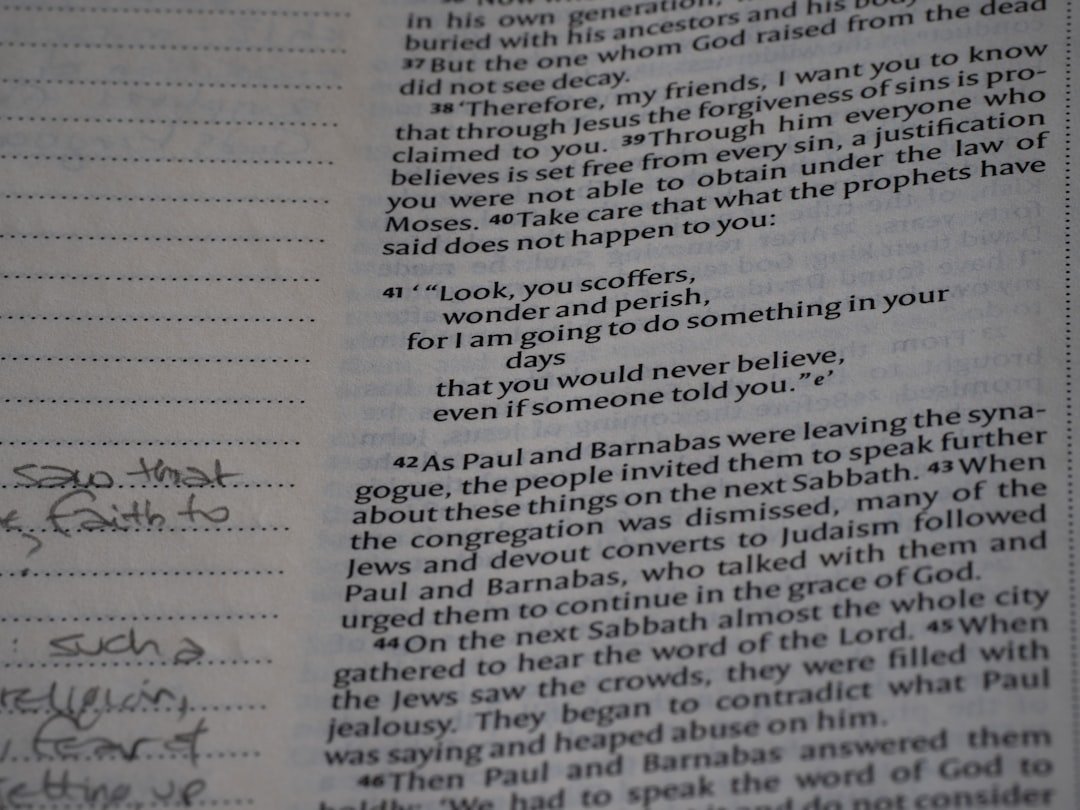 saw that
faith to
?
: such a
religion,
fear of
setting up
in his own generation,
buried with his ancestors and his body
37 But the one whom God raised from the dead
did not see decay.
38 ‘Therefore, my friends, I want you to know
that through Jesus the forgiveness of sins is pro-
claimed to you. 39 Through him everyone who
believes is set free from every sin, a justification
you were not able to obtain under the law of
Moses. 40 Take care that what the prophets have
said does not happen to you:
41 ‘“Look, you scoffers,
wonder and perish,
for I am going to do something in your
days
that you would never believe,
even if someone told you.” e’
42 As Paul and Barnabas were leaving the syna-
gogue, the people invited them to speak further
about these things on the next Sabbath. 43 When
the congregation was dismissed, many of the
Jews and devout converts to Judaism followed
Paul and Barnabas, who talked with them and
urged them to continue in the grace of God.
44 On the next Sabbath almost the whole city
gathered to hear the word of the Lord. 45 When
the Jews saw the crowds, they were filled with
jealousy. They began to contradict what Paul
was saying and heaped abuse on him.
46 Then Paul and Barnabas answered them
boldly: ‘We had to speak the word of God to
and do not consider